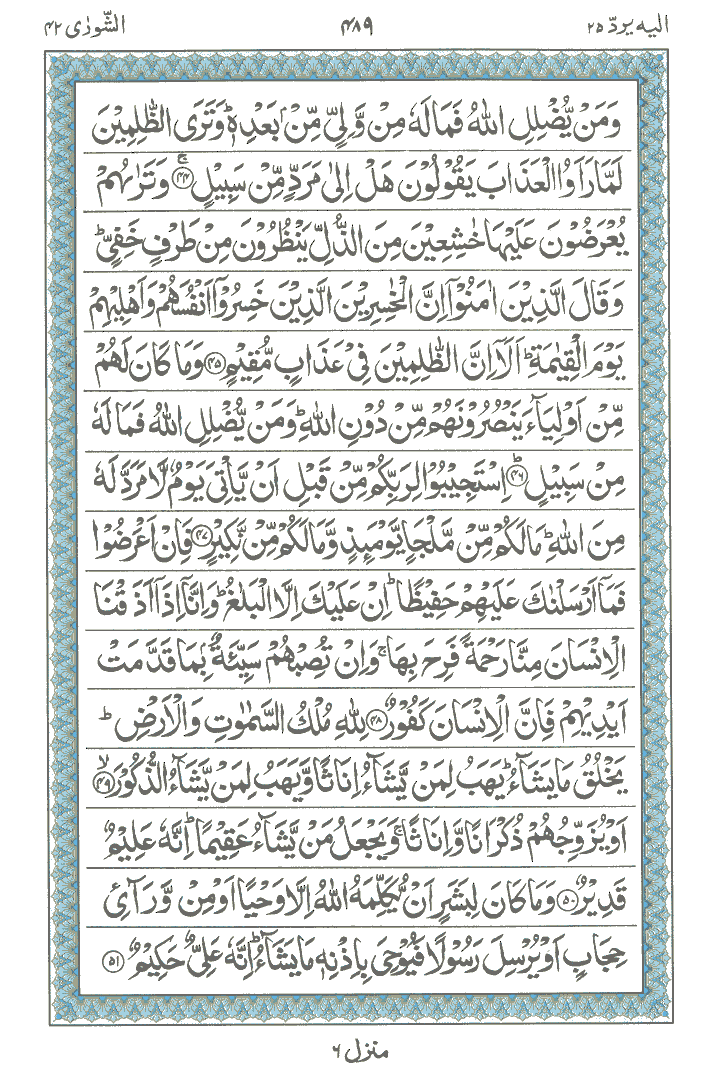 الیه یردّ ۲۵
۴۸۹
الشّورٰی ۴۲
وَمَنْ یُّضْلِلِ اللّٰهُ فَمَا لَهٗ مِنْ وَّلِیٍّ مِّنْۢ بَعْدِهٖ ؕ وَتَرَی الظّٰلِمِیْنَ
لَمَّا رَاَوُا الْعَذَابَ یَقُوْلُوْنَ هَلْ اِلٰی مَرَدٍّ مِّنْ سَبِیْلٍ ۚ﴿۴۴﴾ وَتَرٰىهُمْ
یُعْرَضُوْنَ عَلَیْهَا خٰشِعِیْنَ مِنَ الذُّلِّ یَنْظُرُوْنَ مِنْ طَرْفٍ خَفِیٍّ ؕ
وَقَالَ الَّذِیْنَ اٰمَنُوْۤا اِنَّ الْخٰسِرِیْنَ الَّذِیْنَ خَسِرُوْۤا اَنْفُسَهُمْ وَاَهْلِیْهِمْ
یَوْمَ الْقِیٰمَةِ ؕ اَلَاۤ اِنَّ الظّٰلِمِیْنَ فِیْ عَذَابٍ مُّقِیْمٍ ﴿۴۵﴾ وَمَا کَانَ لَهُمْ
مِّنْ اَوْلِیَآءَ یَنْصُرُوْنَهُمْ مِّنْ دُوْنِ اللّٰهِ ؕ وَمَنْ یُّضْلِلِ اللّٰهُ فَمَا لَهٗ
مِنْ سَبِیْلٍ ؕ﴿۴۶﴾ اِسْتَجِیْبُوْا لِرَبِّکُمْ مِّنْ قَبْلِ اَنْ یَّاْتِیَ یَوْمٌ لَّا مَرَدَّ لَهٗ
مِنَ اللّٰهِ ؕ مَا لَکُمْ مِّنْ مَّلْجَاٍ یَّوْمَئِذٍ وَّمَا لَکُمْ مِّنْ نَّکِیْرٍ ﴿۴۷﴾ فَاِنْ اَعْرَضُوْا
فَمَاۤ اَرْسَلْنٰكَ عَلَیْهِمْ حَفِیْظًا ؕ اِنْ عَلَیْكَ اِلَّا الْبَلٰغُ ؕ وَاِنَّاۤ اِذَاۤ اَذَقْنَا
الْاِنْسَانَ مِنَّا رَحْمَةً فَرِحَ بِهَا ۚ وَاِنْ تُصِبْهُمْ سَیِّئَةٌۢ بِمَا قَدَّمَتْ
اَیْدِیْهِمْ فَاِنَّ الْاِنْسَانَ کَفُوْرٌ ﴿۴۸﴾ لِلّٰهِ مُلْكُ السَّمٰوٰتِ وَالْاَرْضِ ؕ
یَخْلُقُ مَا یَشَآءُ ؕ یَهَبُ لِمَنْ یَّشَآءُ اِنَاثًا وَّیَهَبُ لِمَنْ یَّشَآءُ الذُّکُوْرَ ﴿ۙ۴۹﴾
اَوْ یُزَوِّجُهُمْ ذُکْرَانًا وَّاِنَاثًا ۚ وَیَجْعَلُ مَنْ یَّشَآءُ عَقِیْمًا ؕ اِنَّهٗ عَلِیْمٌ
قَدِیْرٌ ﴿۵۰﴾ وَمَا کَانَ لِبَشَرٍ اَنْ یُّکَلِّمَهُ اللّٰهُ اِلَّا وَحْیًا اَوْ مِنْ وَّرَآئِ
حِجَابٍ اَوْ یُرْسِلَ رَسُوْلًا فَیُوْحِیَ بِاِذْنِهٖ مَا یَشَآءُ ؕ اِنَّهٗ عَلِیٌّ حَکِیْمٌ ﴿۵۱﴾
منزل ۶